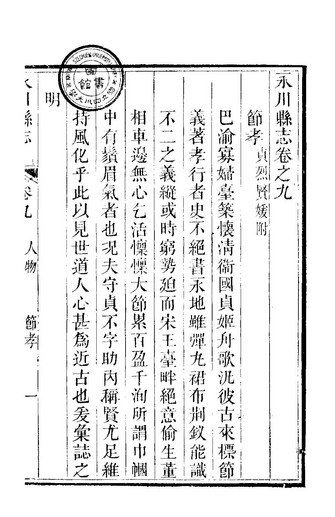 永川縣志卷之九
節孝 貞烈 賢媛附
巴渝寡婦臺築懷清衞國貞姬舟歌汎彼古來標節
義著孝行者史不絕書永地雖彈丸裙布荆釵能識
不二之義縱或時窮勢迫而宋王臺畔絕意偷生董
相車邊無心乞活懍懍大節累百盈千洵所謂巾幗
中有鬚眉氣者也况夫守貞不字助內稱賢尤足維
持風化乎此以見世道人心甚爲近古也爰彙誌之
明
永川縣志
卷九
人物
節孝
一